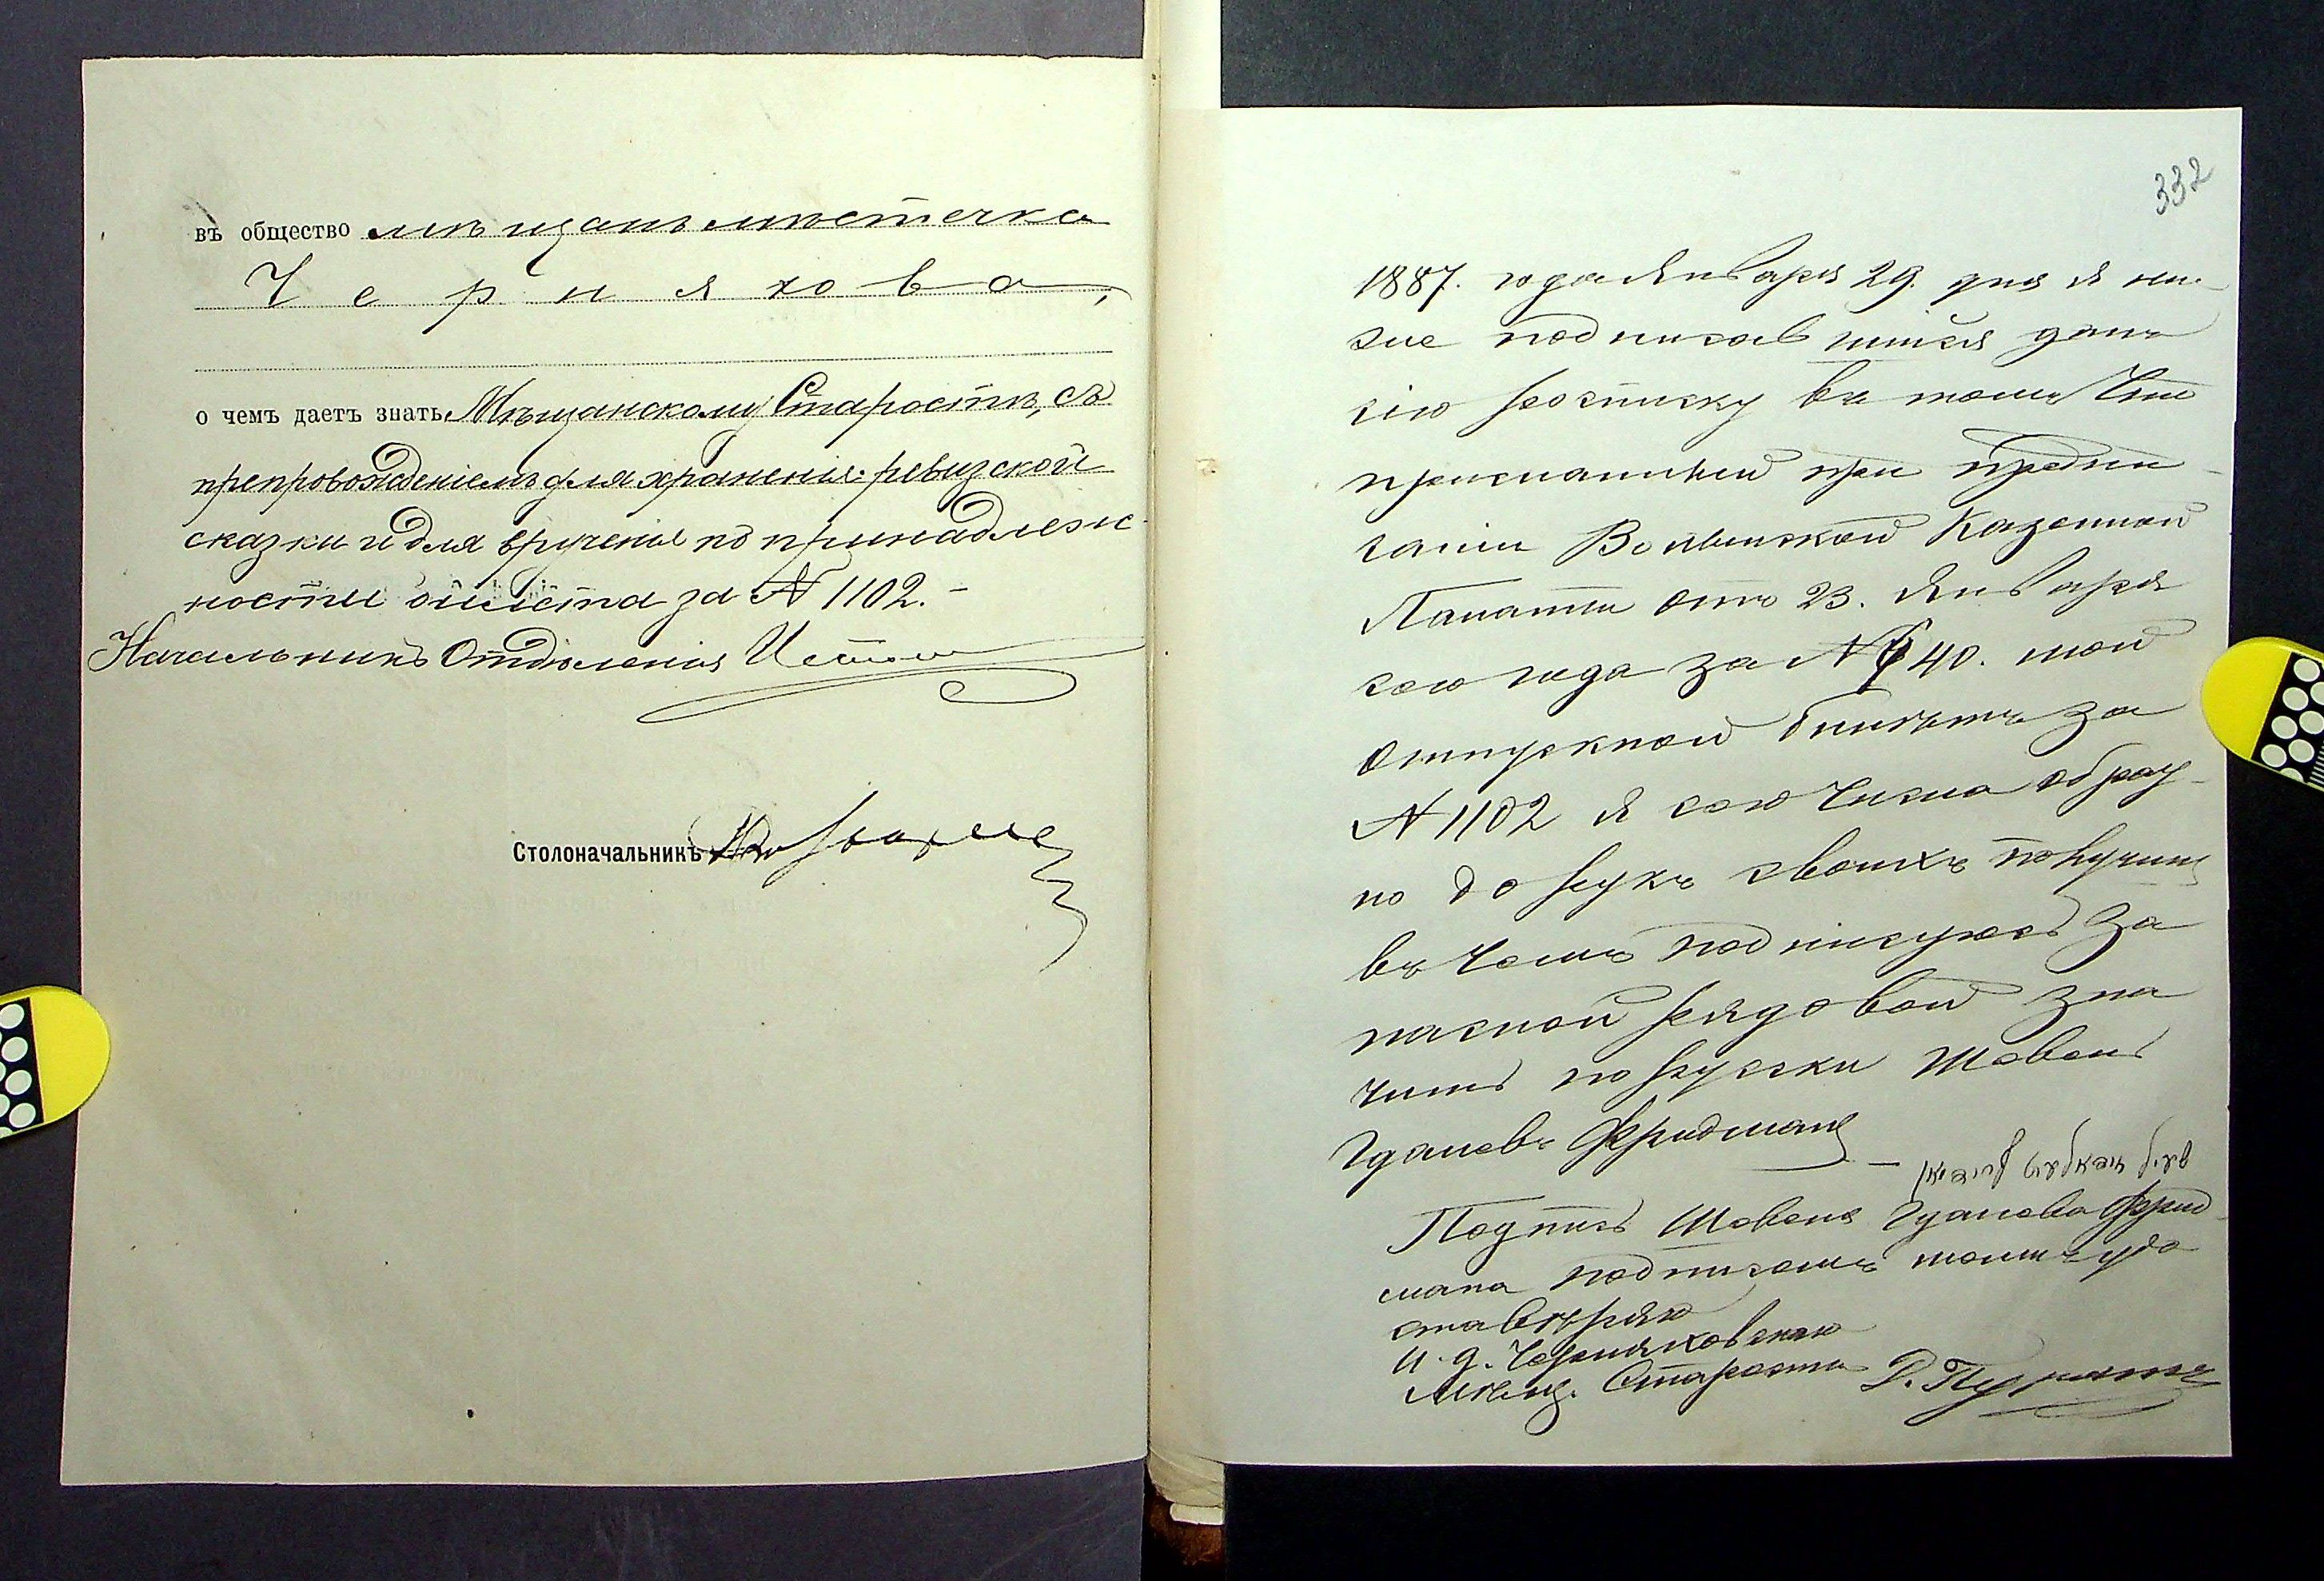 въ общество мѣщанъ мѣстечка
Черняхова,
о чемъ даетъ знать Мѣщанскому Старостѣ, съ
препровожденіемъ для храненія ревизской
сказки и для врученія по принадлеж-
ности билета за № 1102.-
Начальникъ Отдѣленія
Столоначальникъ
332
1887. года Января 29. дня я ни-
же подписавшійся далъ
сію росписку въ томъ что
присланный при предпи-
саніи Волынской Казенной
Палаты отъ 23. Января
сего года за № 640. мой
отпускной билетъ за
№ 1102 я сего числа обрат-
но до рукъ своихъ получилъ
въ чемъ подписуюсь За
пасной рядовой зна
читъ по русски Шевель
Гдалевъ Фридманъ -
Подпись Шевеля Гдалева Фрид-
мана подписомъ моимъ удо
ставеряю
И. д. Черняховскаго
Мѣщ. Старосты Д.